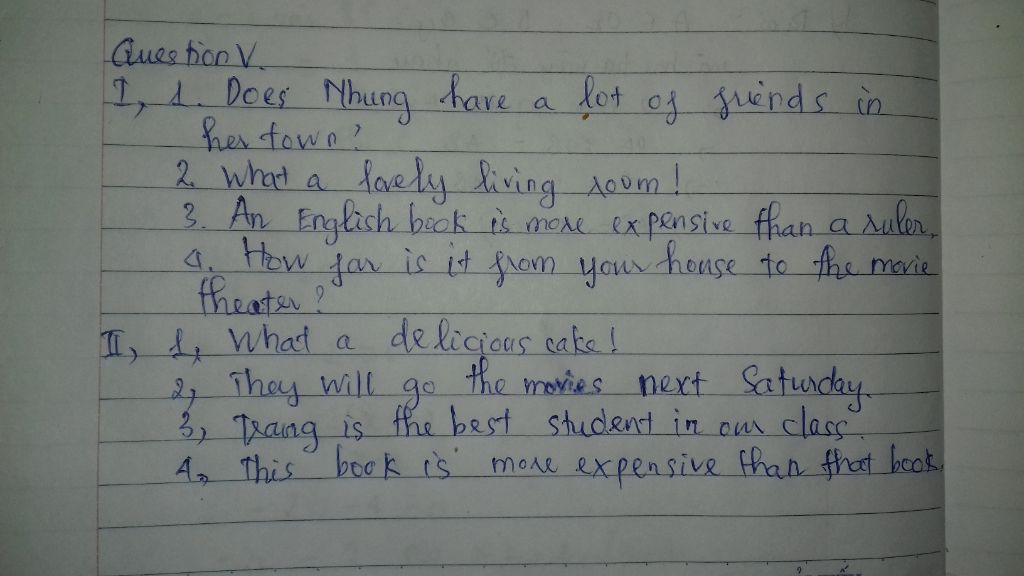 Question V.
I, 1. Does Nhung have a lot of friends in
her town?
2. What a lovely living room!
3. An English book is more expensive than a ruler.
4. How far is it from your house to the movie
theater?
II, 1, What a delicious cake!
2, They will go the movies next Saturday.
3, Trang is the best student in our class.
4, This book is more expensive than that book.